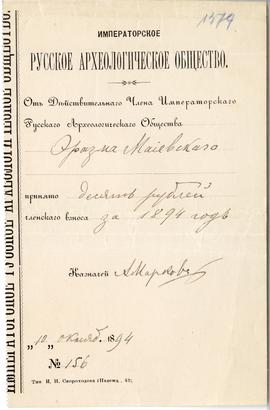 1574
ИМПЕРАТОРСКОЕ
РУССКОЕ АРХЕОЛОГИЧЕСКОЕ ОБЩЕСТВО.
Отъ Дѣйствительнаго Члена Императорскаго
Русскаго Археологическаго Общества
Эразма Маіевскаго
принято десять рублей
членскаго взноса за 1894 годъ
Казначей АМарковъ
„10„ октяб. 1894
№ 156
Тип. И. Н. Скороходова (Надежд., 43).